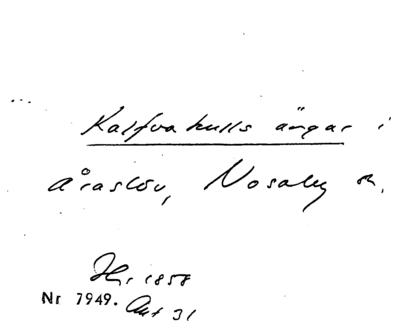 Kalfvahulls ängar i
Åraslöv, Nosaby sn.
Hs. 1858
Nr 7949. Akt 31